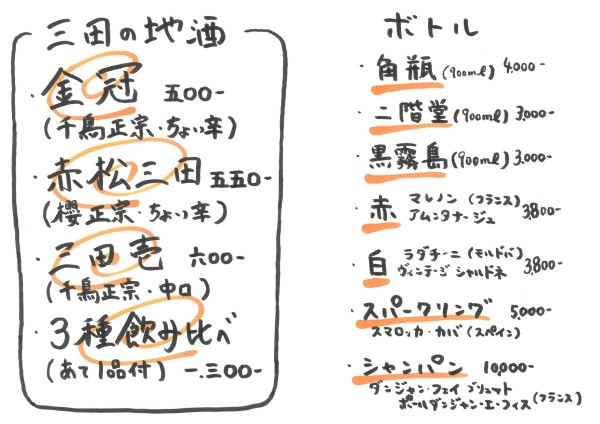 三田の地酒
・金冠 五00-
(千鳥正宗・ちょい辛)
・赤松三田 五五0-
(櫻正宗・ちょい辛)
・三田壱 六00-
(千鳥正宗・中口)
・3種飲み比べ
(あて1品付) 一.三00-
ボトル
・角瓶(900ml) 4.000-
・二階堂(900ml) 3.000-
・黒霧島(900ml) 3.000-
・赤 マレノン (フランス) 3,800-
アムンタナージュ
・白 ラダチーニ (モルドバ) 3,800-
ヴィンテージ シャルドネ
・スパークリング 5,000-
スマロッカ・カバ (スペイン)
・シャンパン 10,000-
ダンジャン・フェイ ブリュット
ポールダンジャン・エ・フィス (フランス)